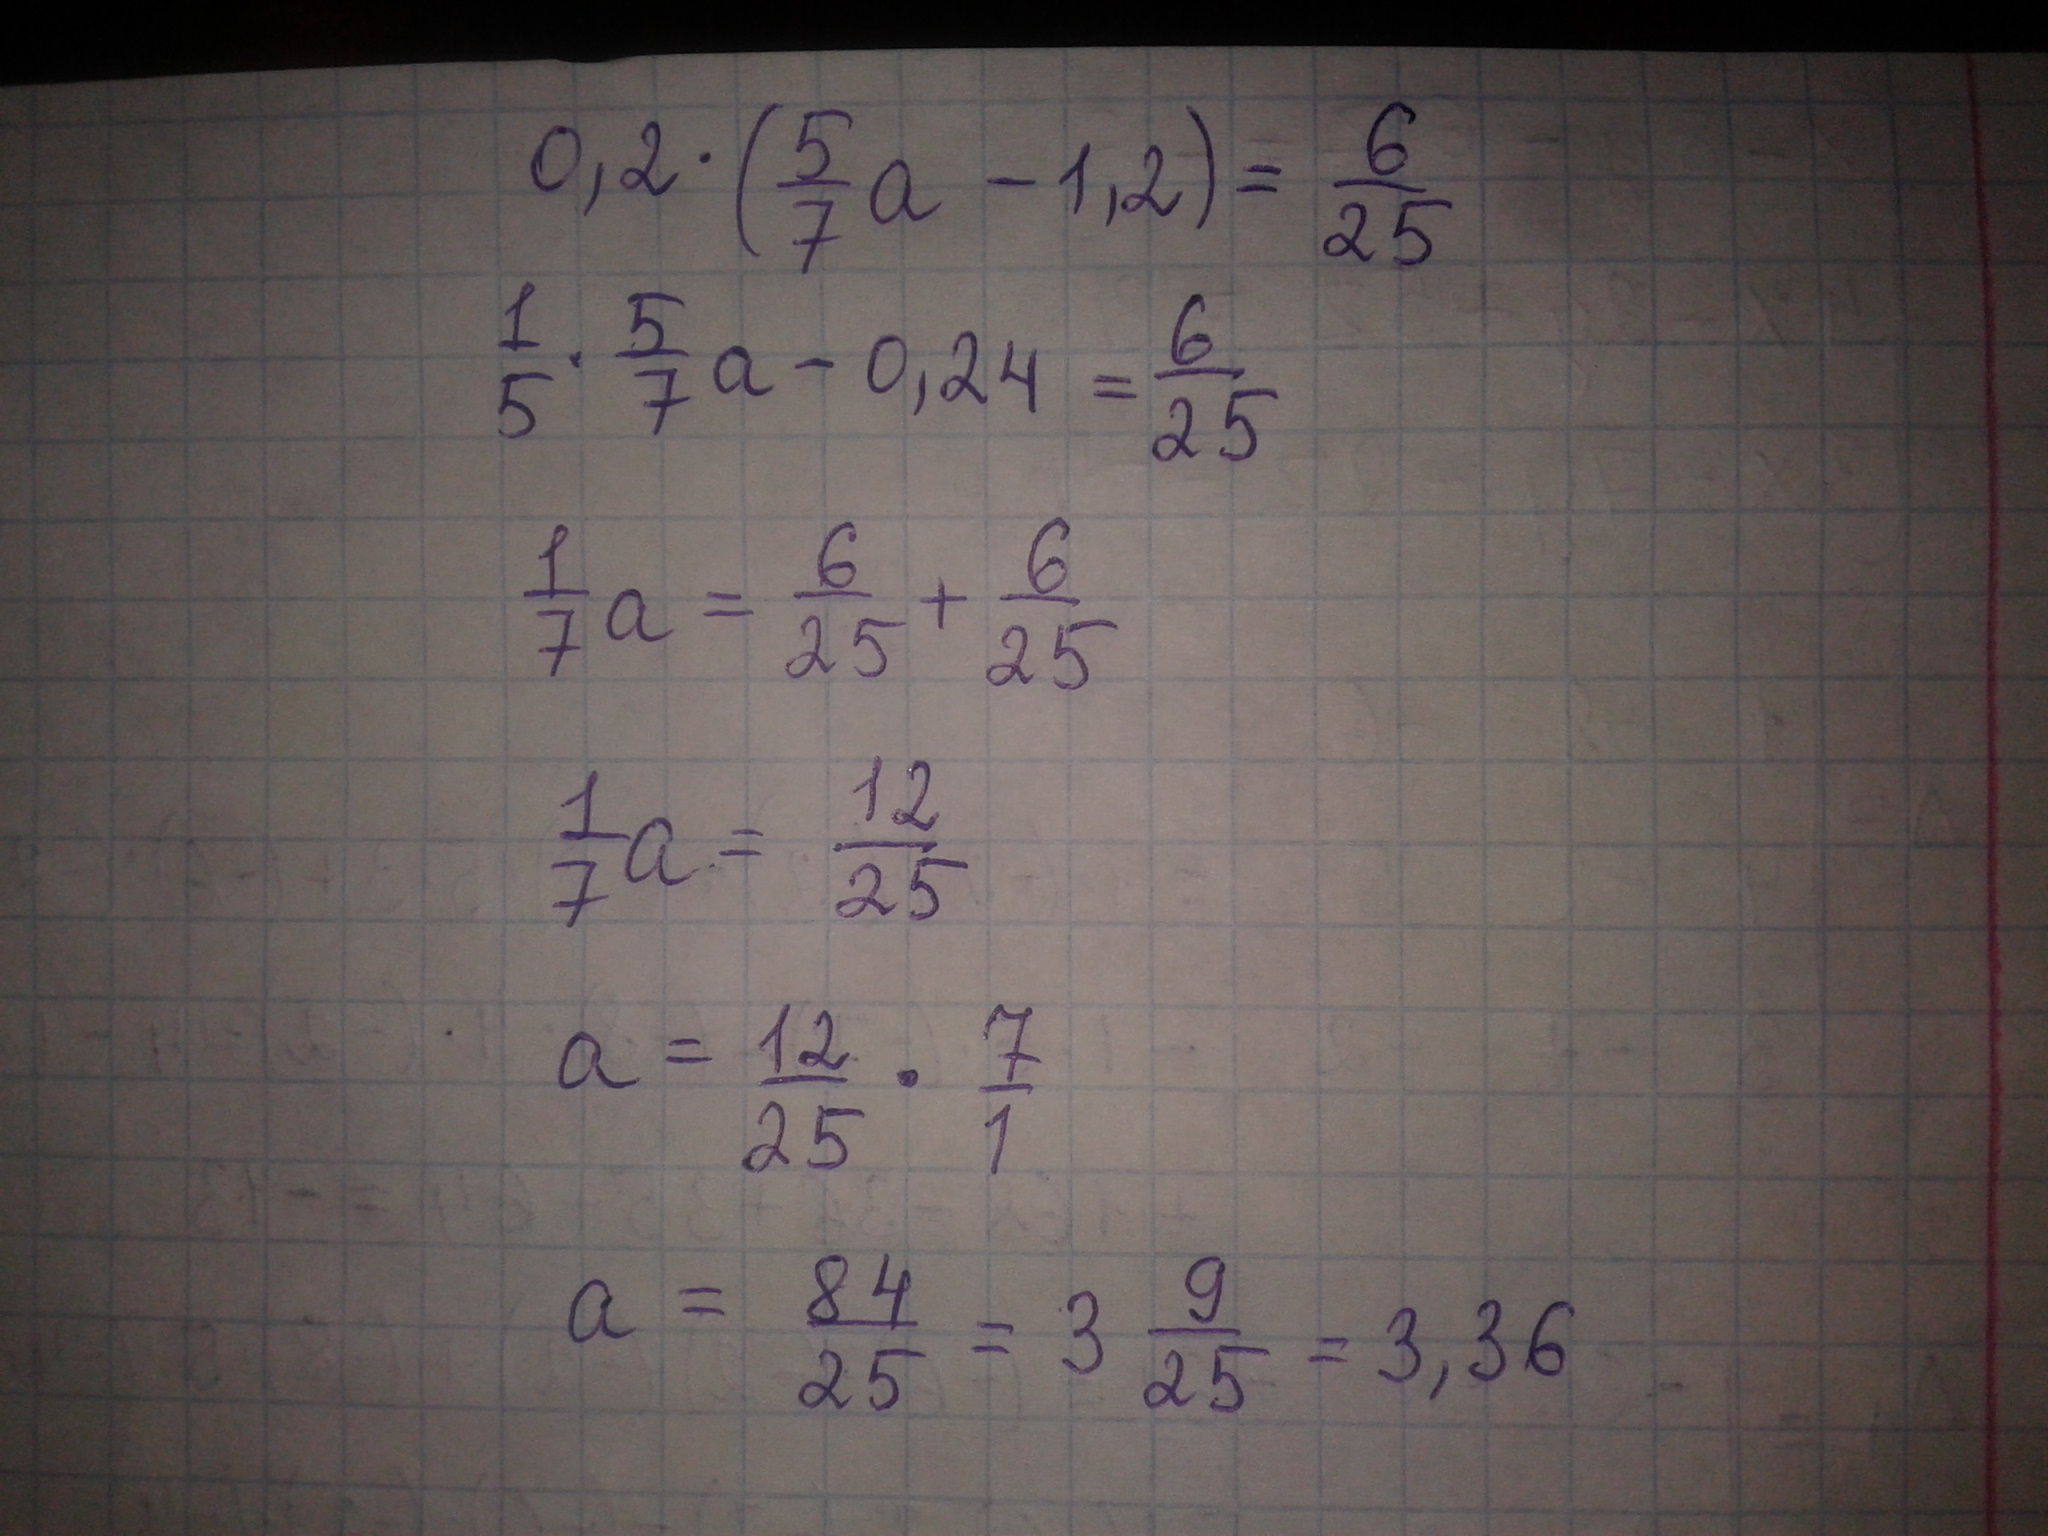 0,2·(5/7 a - 1,2) = 6/25
1/5 · 5/7 a - 0,24 = 6/25
1/7 a = 6/25 + 6/25
1/7 a = 12/25
a = 12/25 · 7/1
a = 84/25 = 3 9/25 = 3,36